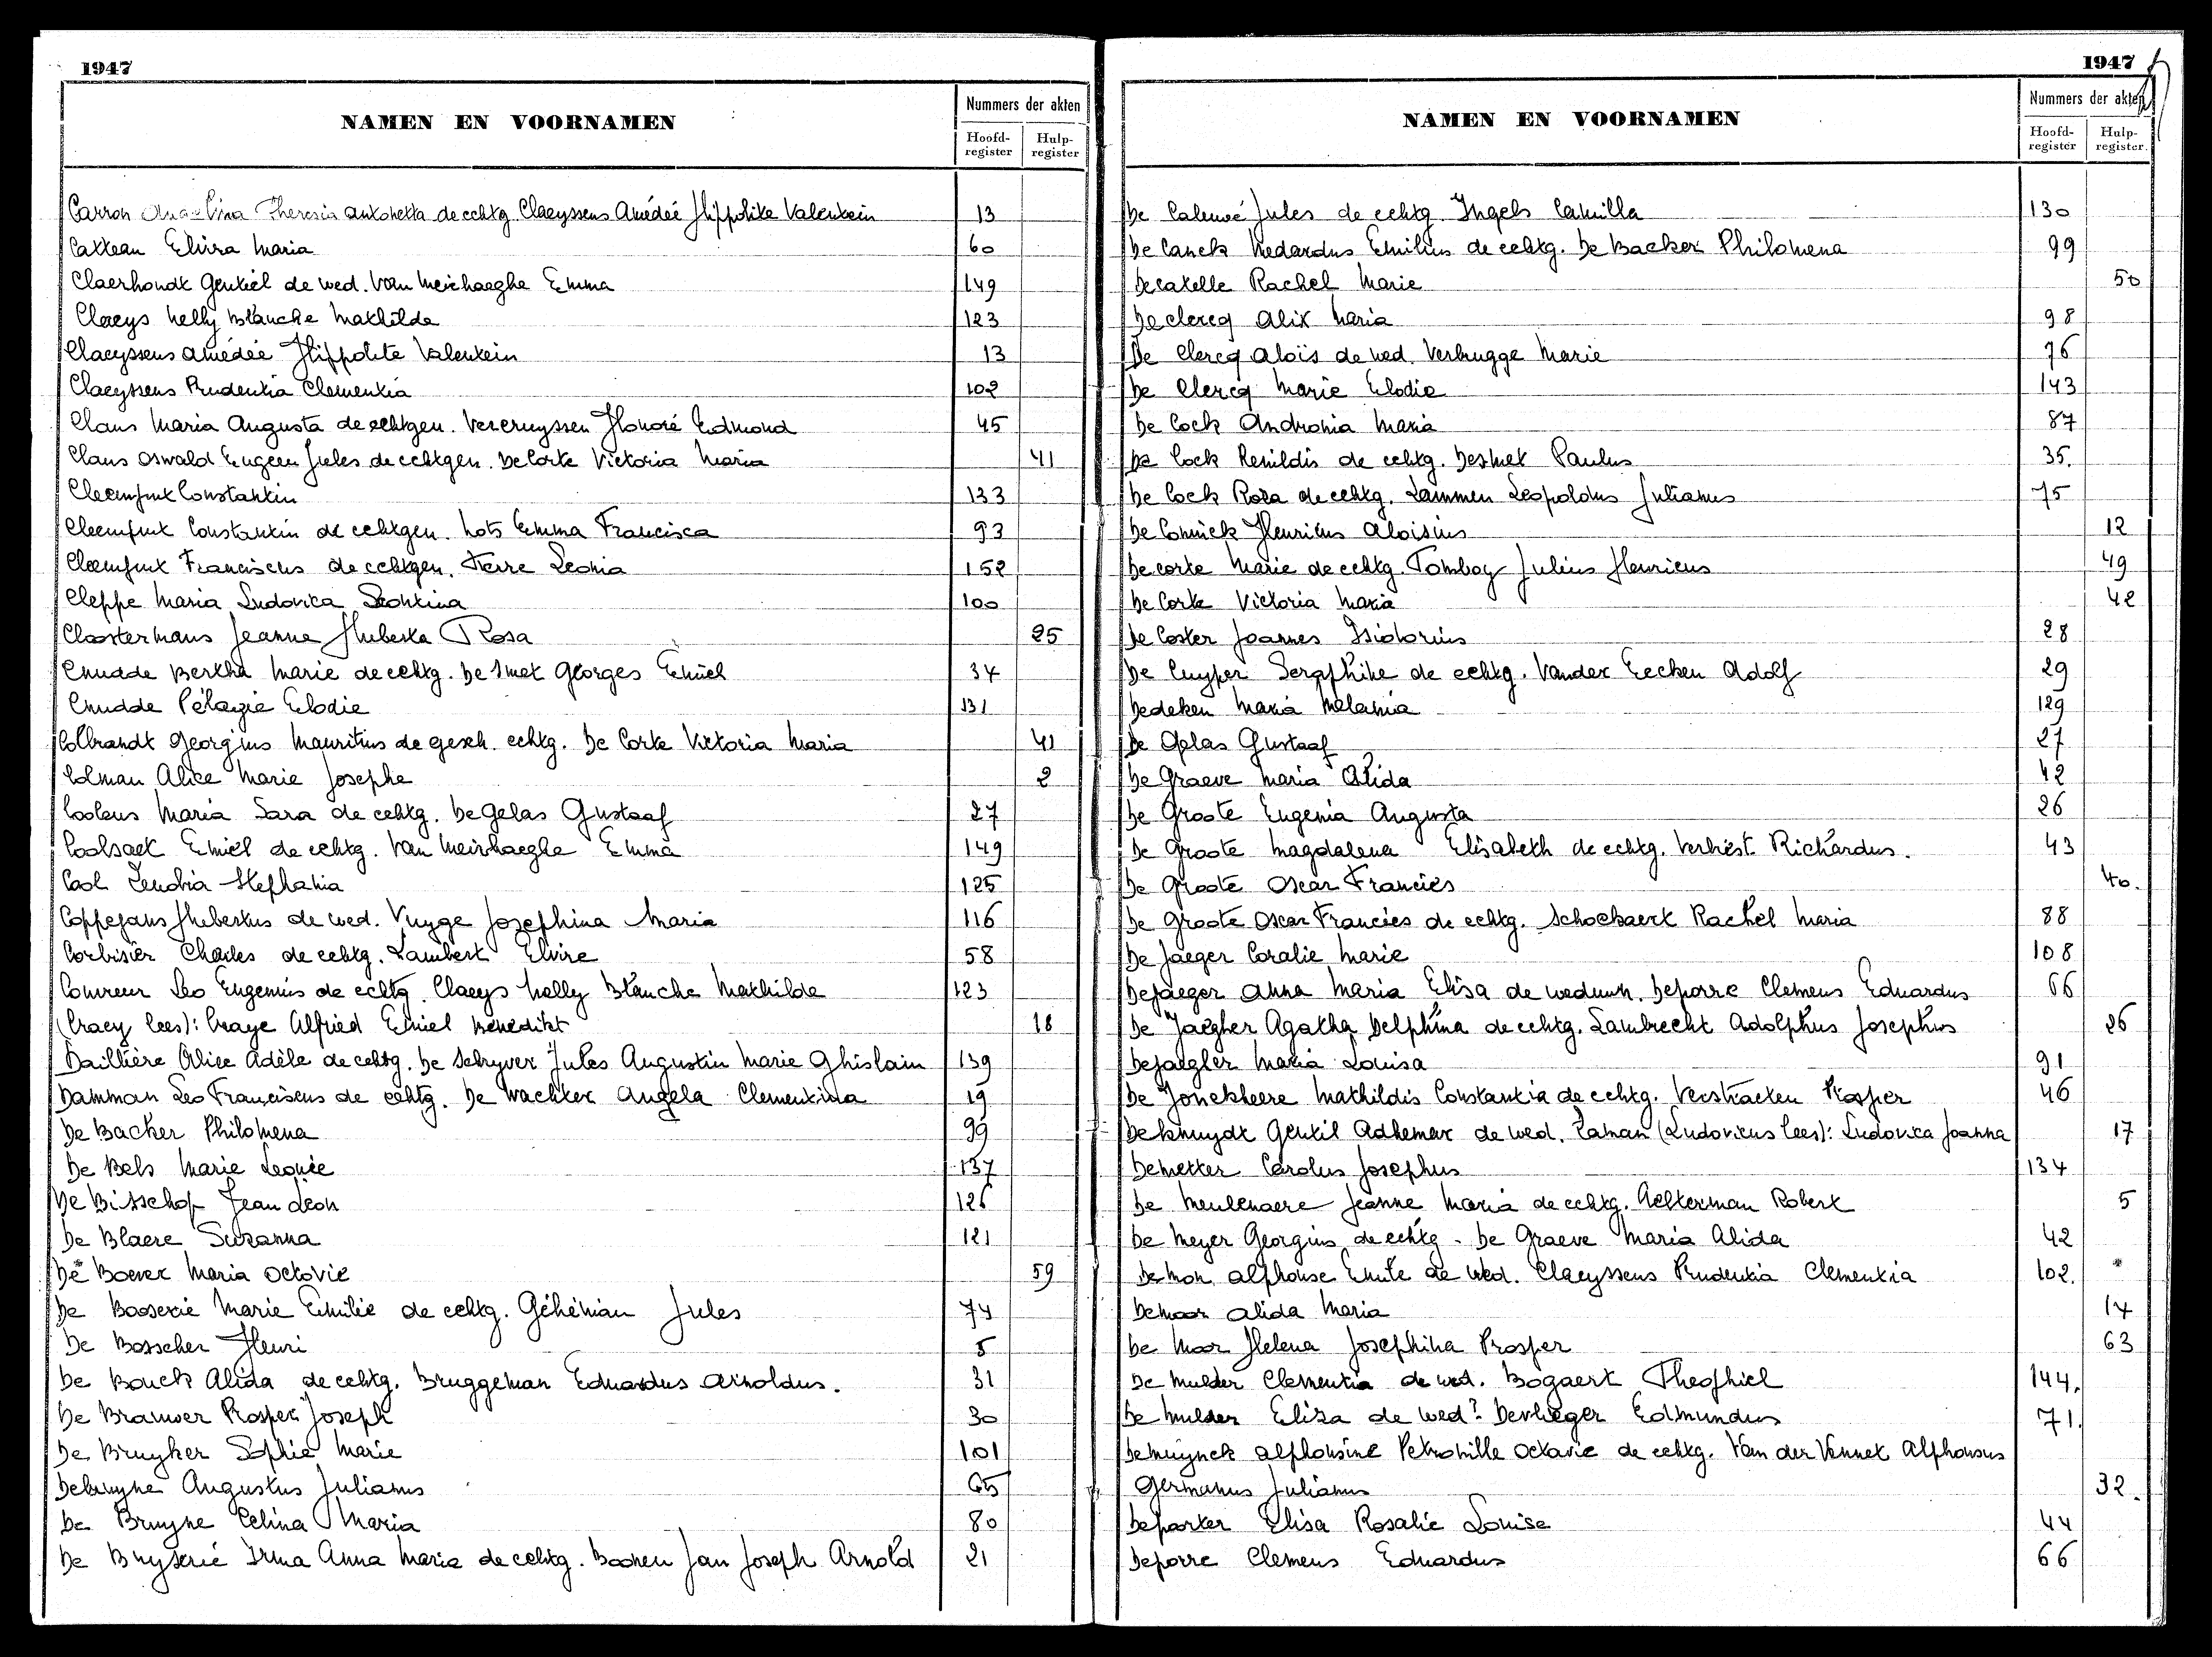 1947
NAMEN EN VOORNAMEN
Nummers der akten
Hoofd-register
Hulp-register
Carron Angelina Theresia Antonetta de echtg. Claeyssens Amédeé Hippolite Valentein 13
Catteau Elvira Maria 60
Claerhoudt Gentiel de wed. Van Meirhaeghe Emma 149
Claeys Nelly Blanche Mathilde 123
Claeyssens Amédée Hippolite Valentein 13
Claeyssens Prudentia Clementia 102
Claus Maria Augusta de echtgen. Vereruyssen Honoré Edmond 45
Claus Oswald Eugeen Jules de echtgen. De Corte Victoria Maria 41
Cleemput Constantin 133
Cleemput Constantin de echtgen. Nots Emma Francisca 93
Cleemput Franciscus de echtgen. Fierre Leonia 152
Cleppe Maria Ludovica Leontina 100
Cloostermans Jeanne Huberta Rosa 25
Cnudde Bertha Marie de echtg. De Smet Georges Emiel 34
Cnudde Pélagie Elodie 131
Colbrandt Georgius Mauritius de gesch. echtg. De Corte Victoria Maria 41
Colman Alice Marie Josephe 2
Coolens Maria Sara de echtg. De Gelas Gustaaf 27
Coolsaet Emiel de echtg. Van Meirhaeghe Emma 149
Cool Zenobia Stephania 125
Coppejans Hubertus de wed. Vuyge Josephina Maria 116
Corbisier Charles de echtg. Lambert Elvire 58
Couvreur Leo Eugenius de echtg. Claeys Nelly Blanche Mathilde 123
(Cracy lees): Craye Alfried Emiel Benedikt 18
Daillière Alice Adèle de echtg. De Schryver Jules Augustin Marie Ghislain 139
Damman Leo Franciscus de echtg. De Wachter Angela Clementina 19
De Backer Philomena 99
De Bels Marie Leonie 137
De Bisschop Jean Leon 126
De Blaere Suzanna 121
De Boever Maria Octovie 59
De Booserie Marie Emilie de echtg. Géhénian Jules 74
De Bosscher Henri 5
De Bouck Alida de echtg. Bruggeman Eduardus Arnoldus. 31
De Brauwer Prosper Joseph 30
De Bruyker Sophie Marie 101
Debruyne Augustus Julianus 65
De Bruyne Celina Maria 80
De Bruyserie Irma Anna Maria de echtg. Boonen Jan Joseph Arnold 21
1947
NAMEN EN VOORNAMEN
Nummers der akten
Hoofd-register
Hulp-register.
De Caluwé Jules de echtg. Ingels Camilla 130
De Canck Medardus Emilius de echtg. De Backer Philomena 99
Decatelle Rachel Marie 50
Declercq Alix Maria 98
De Clercq Aloïs de wed. Verbrugge Marie 76
De Clercq Marie Elodie 143
De Cock Andronia Maria 87
De Cock Renildis de echtg. Desmet Paulus 35.
De Cock Roza de echtg. Lammen Leopoldus Julianus 75
De Coninck Henricus Aloisius 12
Decorte Marie de echtg. Tomboy Julius Henricus 49
De Corte Victoria Maria 42
De Coster Joannes Isidorius 28
De Cuyper Seraphine de echtg. Vander Eecken Adolf 29
Dedeken Maria Melania 129
De Gelas Gustaaf 27
De Graeve Maria Alida 42
De Groote Eugenia Augusta 26
De Groote Magdalena Elisabeth de echtg. Verhiest Richardus. 43
De Groote Oscar Francies 40.
De Groote Oscar Francies de echtg. Schockaert Rachel Maria 88
De Jaeger Coralie Marie 108
Dejaeger Anna Maria Elisa de weduwn. Deporre Clemens Eduardus 66
De Jaegher Agatha Delphina de echtg. Lambrecht Adolphus Josephus 26
Dejaegher Maria Louisa 91
De Jonckheere Mathildis Constantia de echtg. Verstraeten Prosper 46
Deknuydt Gentil Adhemar de wed. Zaman (Ludovicus lees): Ludovica Joanna 17
Demetter Carolus Josephus 134
De Meulenaere Jeanne Maria de echtg. Aelterman Robert 5
De Meyer Georgius de echtg. De Graeve Maria Alida 42
Demon Alphonse Emile de wed. Claeyssens Prudentia Clementia 102.
Demoor Alida Maria 14
De Moor Helena Josephina Prosper 63
De Mulder Clementia de wed. Bogaert Theophiel 144.
De Mulder Eliza de wed. Devlieger Edmundus 71.
Demuynck Alphonsine Petronille Octavie de echtg. Van der Vennet Alphonsus
Germanus Julianus 32.
Departer Elisa Rosalie Louise 44
Deporre Clemens Eduardus 66